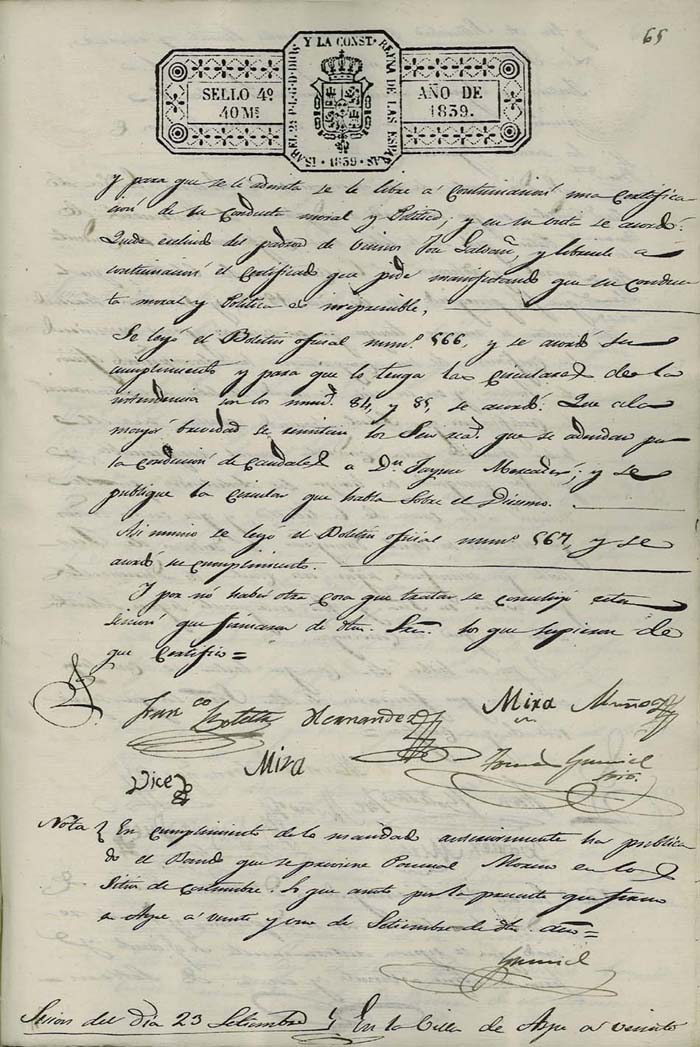 65
SELLO 4º
40 Ms
ISABEL 2ª P.L.G.D.DIOS Y LA CONST. REYNA DE LAS ESPAÑAS
1839
AÑO DE
1839.
y para que se le admita se le libre á continuacion una certifica
cion de su conducta moral y Politica; y en su vista se acordó:
Quede escluido del padron de vecinos José Galvañ, y librese á
continuacion el certificado que pide manifestando que su conduc
ta moral y Politica es irreprensible,
Se leyó el Boletin oficial num.º 566, y se acordó su
cumplimiento y para que lo tenga las circulares de la
intendencia con los num.s 84, y 85, se acordó: Que á la
mayor brevedad se remitan los que se adeudan por
la condicion de caudales á Dn Jayme Mercader; y se
publique la circular que habla sobre el Diesmo.
Asi mismo se leyó el Boletin oficial num.º 567, y se
acordó su cumplimiento.
Y por no haber otra cosa que tratar se concluyó esta
sesion que firmaron de dhos. Sres. los que supieron de
que certifico=
Franco Hernandez Mira Muñoz
Vice
Mira
Tomas Gumiel
Srio.
Nota En cumplimiento de lo mandado anteriormente ha publica
do el Bando que se previene Pascual Moreno en los
Sitios de costumbre. Lo que anoto por la presente que firmo
en Aspe á veinte y uno de Setiembre de dho. año=
Gumiel
Sesion del dia 23 Setiembre En la Villa de Aspe á veinte